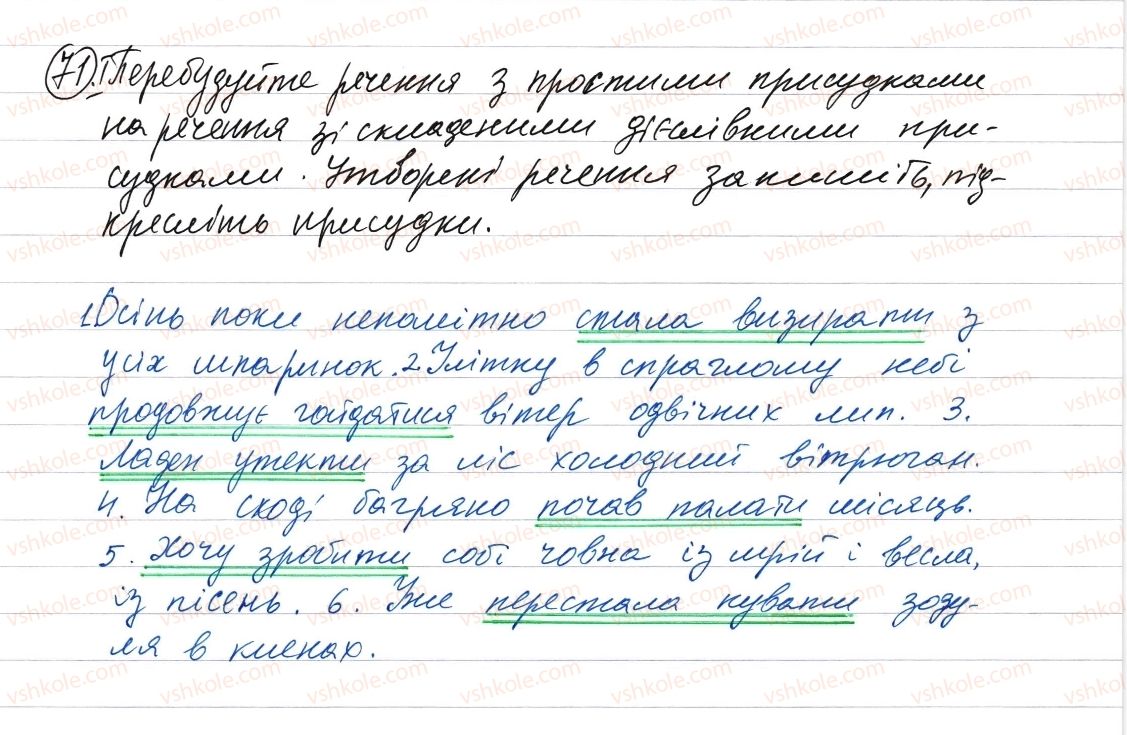 71). Перебудуйте речення з простими присудками
на речення зі складеними дієслівними при-
судками. Утворені речення запишіть, під-
кресліть присудки.
1. Осінь поки непомітно стала визирати з
усіх шпаринок. 2. Улітку в спраглому небі
продовжує гойдатися вітер одвічних лип. 3.
Ладен утекти за ліс холодний вітрюган.
4. На сході багряно почав палати місяць.
5. Хочу зробити собі човна із мрій і весла,
із пісень. 6. Уже перестала кувати зозу-
ля в кленах.
vshkole.com